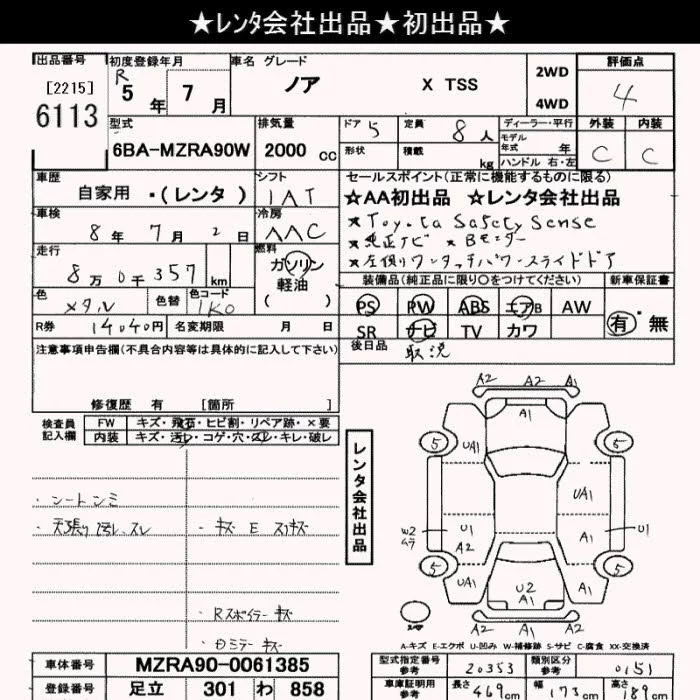 ★レンタ会社出品★初出品★
出品番号 初度登録年月 車名 グレード 評価点
[2215]
6113
R 5 年 7 月
ノア X TSS
2WD
4WD
4
型式 排気量 ドア 5 定員 8 人 ディーラー・平行 外装 内装
6BA-MZRA90W 2000 cc
形状 積載 kg
モデル年式 年
ハンドル 右・左
C C
車歴 シフト セールスポイント(正常に機能するものに限る)
自家用 ・(レンタ) IAT
★AA初出品 ☆レンタ会社出品
車検 冷房
8 年 7 月 2 日 AAC
★Toyota Safety Sense
★純正ナビ ★Bモニター
★左側ワンタッチパワースライドドア
走行 燃料
8 万 0 千 357 km
ガソリン
軽油
( )
装備品(純正品に限り○をつけてください) 新車保証書
色 色替 色コード
メタル 1K0
PS PW ABS エアB AW
SR ナビ TV カワ
有・無
R券 14040円 名変期限 月 日
後日品 取説
注意事項申告欄(不具合内容等は具体的に記入して下さい)
修復歴 有 [箇所 ]
検査員
記入欄
FW キズ・飛石・ヒビ割・リペア跡・×要
内装 キズ・汚レ・コゲ・穴・スレ・キレ・破レ
レンタ会社出品
・シートシミ
・天張り汚レ、スレ
・キズ E スリキズ
・Rスポイラー キズ
・Dミラー キズ
A2 A2 A1
A1
5 5
UA1
UA1
W2
ムラ
U1
A2
A1
U1
5 5
UA1
U2
A1
A1
A2 A1 A2
スペア
A-キズ E-エクボ U-凹み W-補修跡 S-サビ C-腐食 XX-交換済
車体番号 MZRA90-0061385
型式指定番号
参考
20353
類別区分
参考
0151
登録番号 足立 301 わ 858
車庫証明用
参考
長さ 469cm 幅 173cm 高さ 189cm